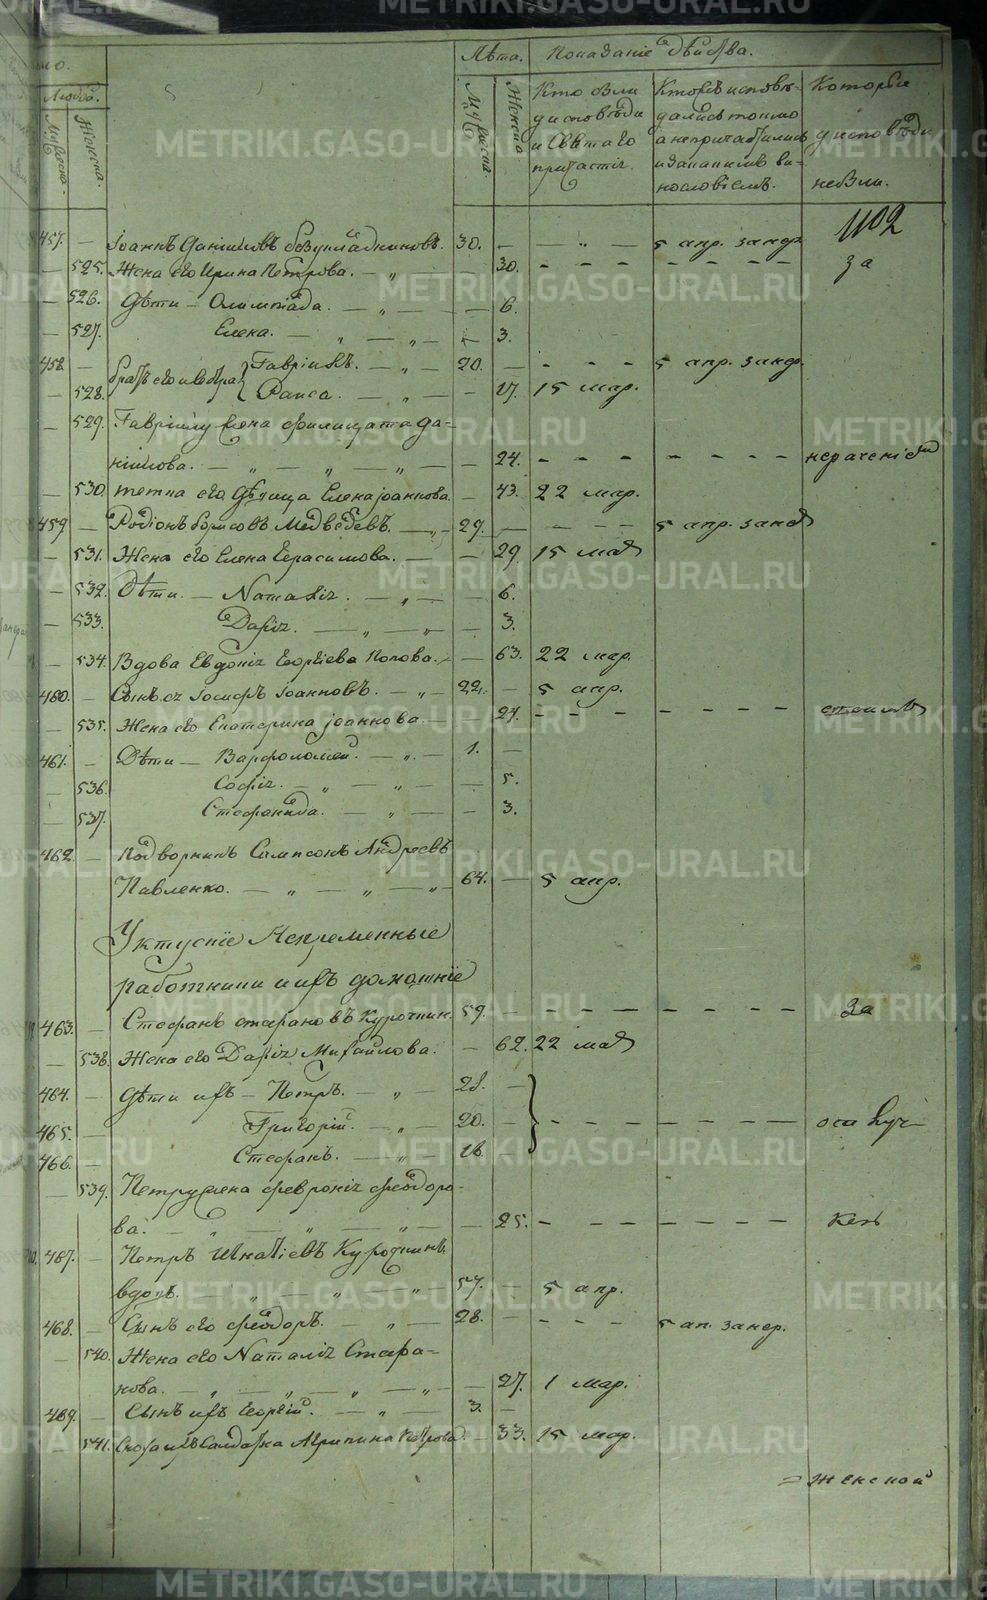 Лѣта. Попаданіе Дѣйства.
Людей.
Мужеска. Женска.
Мужеска. Женска.
Кто были
у исповѣди
и Святаго
причастія.
Кто исповѣ-
дались токмо
а не причастились
и за какимъ ви-
нословіемъ.
Которые
у исповѣди
не были.
1102
457. — Іоаннъ Даниловъ 30. — — „ — 5 апр.
— 525. Жена его Ирина Петрова. — „ — 30. за
— 526. Дѣти — Олимпіада. — „ — 6.
— 527. Елена. — „ — „ — 3.
458. — братъ его и сестра { Гавріилъ. — „ — 20. 5 апр.
— 528. Раиса. — „ — 17. 15 мар.
— 529. Гавріилу жена Фелицата Да-
нiилова. — „ — „ — „ — 24.
— 530. тетка его дѣвица Елена Іоаннова. — 43. 22 мар.
459. — Родіонъ Борисовъ Медведевъ. — „ — 29. — 5 апр.
— 531. Жена его Елена Герасимова. — — 29 15 мая
— 532. Дѣти. — Наталія. — „ — 6.
— 533. Дарія. — „ — „ — 3.
— 534. Вдова Евдокія Георгіева Попова. — 63. 22 мар.
460. — Сынъ ея Іосифъ Іоанновъ. — „ — 22. — 5 апр.
— 535. Жена его Екатерина Іоаннова. — 24.
461. — Дѣти — Варфоломей. — „ — 1. —
— 536. Софія. — „ — „ — 5.
— 537. Стефанида. — „ — 3.
462. — Подворникъ Сампсонъ Андреевъ
Павленко. — „ — „ — „ — 64. — 5 апр.
Уктускіе Непременные
работники и ихъ домашніе
463. — Стефанъ Стефановъ Курочкин. 59. — За
— 538. Жена его Дарія Михайлова. — 62. 22 мая
464. — Дѣти ихъ — Петръ. — „ — 28. —
465. — Григорій. — „ — 20. —
466. — Стефанъ. — „ — 18. —
— 539. Петру жена Февронія Феодоро-
ва. — „ — „ — „ — 25.
467. — Петръ Игнатіевъ Курочкинъ
вдовъ. — „ — „ — „ — 57. — 5 апр.
468. — Сынъ его Феодоръ. — „ — 28. — 5 ап.
— 540. Жена его Наталія Стефа-
нова. — „ — „ — „ — „ — 27. 1 мар.
469. — Сынъ ихъ Георгій. — „ — 3. —
— 541. Салдатка Агрипина Петрова. — 33. 15 мар.
= Женской
METRIKI.GASO-URAL.RU